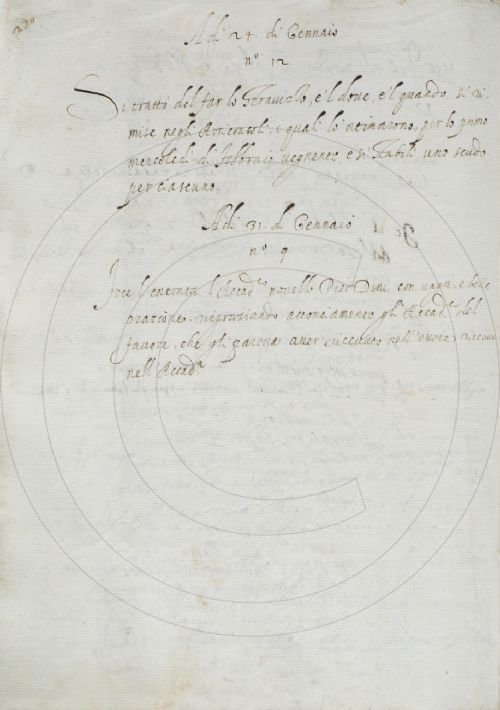 270
A dì 24. di Gennaio
n.º 12
Si trattò del far lo Stravizio, e 'l dove, e 'l quando si ri
mise negli Arciconsoli, i quali lo intimarono, per lo primo
mercoledì di Febbraio vegnente e si stabilì uno scudo
per ciascuno.
A dì 31. di Gennaio
n.º 9
Fece l'entrata l'Accad.º novello Pier Dini con vaga, e bene
orazione, ringraziando acconciamente gli Accad.ci del
favore, che gli pareva aver ricevuto nell'essere ricevuto
nell'Accad.ª